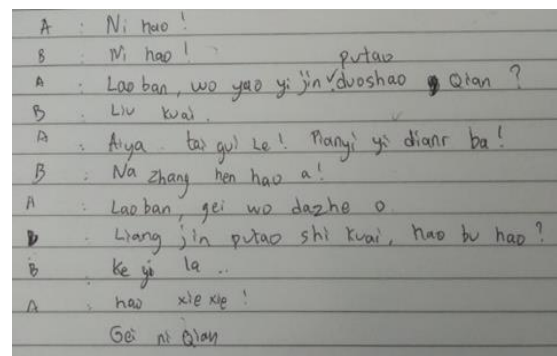 A : Ni hao !
B : Ni hao !
putao
A : Lao ban, wo yao yi jin duoshao Qian ?
B : Liu kuai.
A : Aiya. tai gui Le! Pianyi yi dianr ba!
B : Na zhang hen hao a!
A : Lao ban, gei wo dazhe o.
Liang jin putao shi kuai, hao bu hao ?
B : Ke yi la ..
A : hao xie xie !
Gei ni Qian